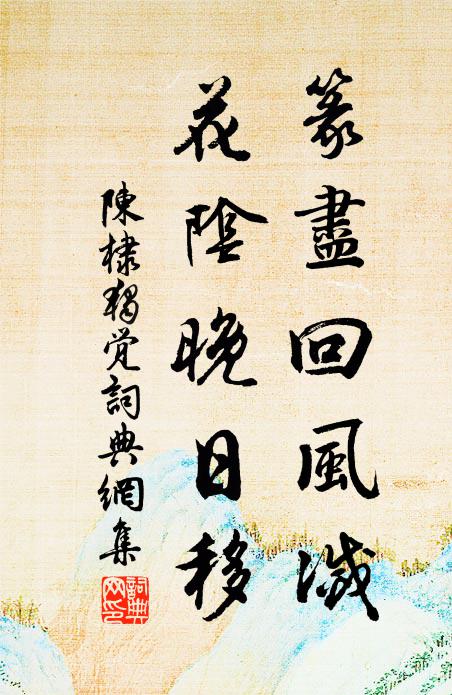 篆盡回風滅
花陰晚日移
陳棣獨覺詞典網集
詞典網印